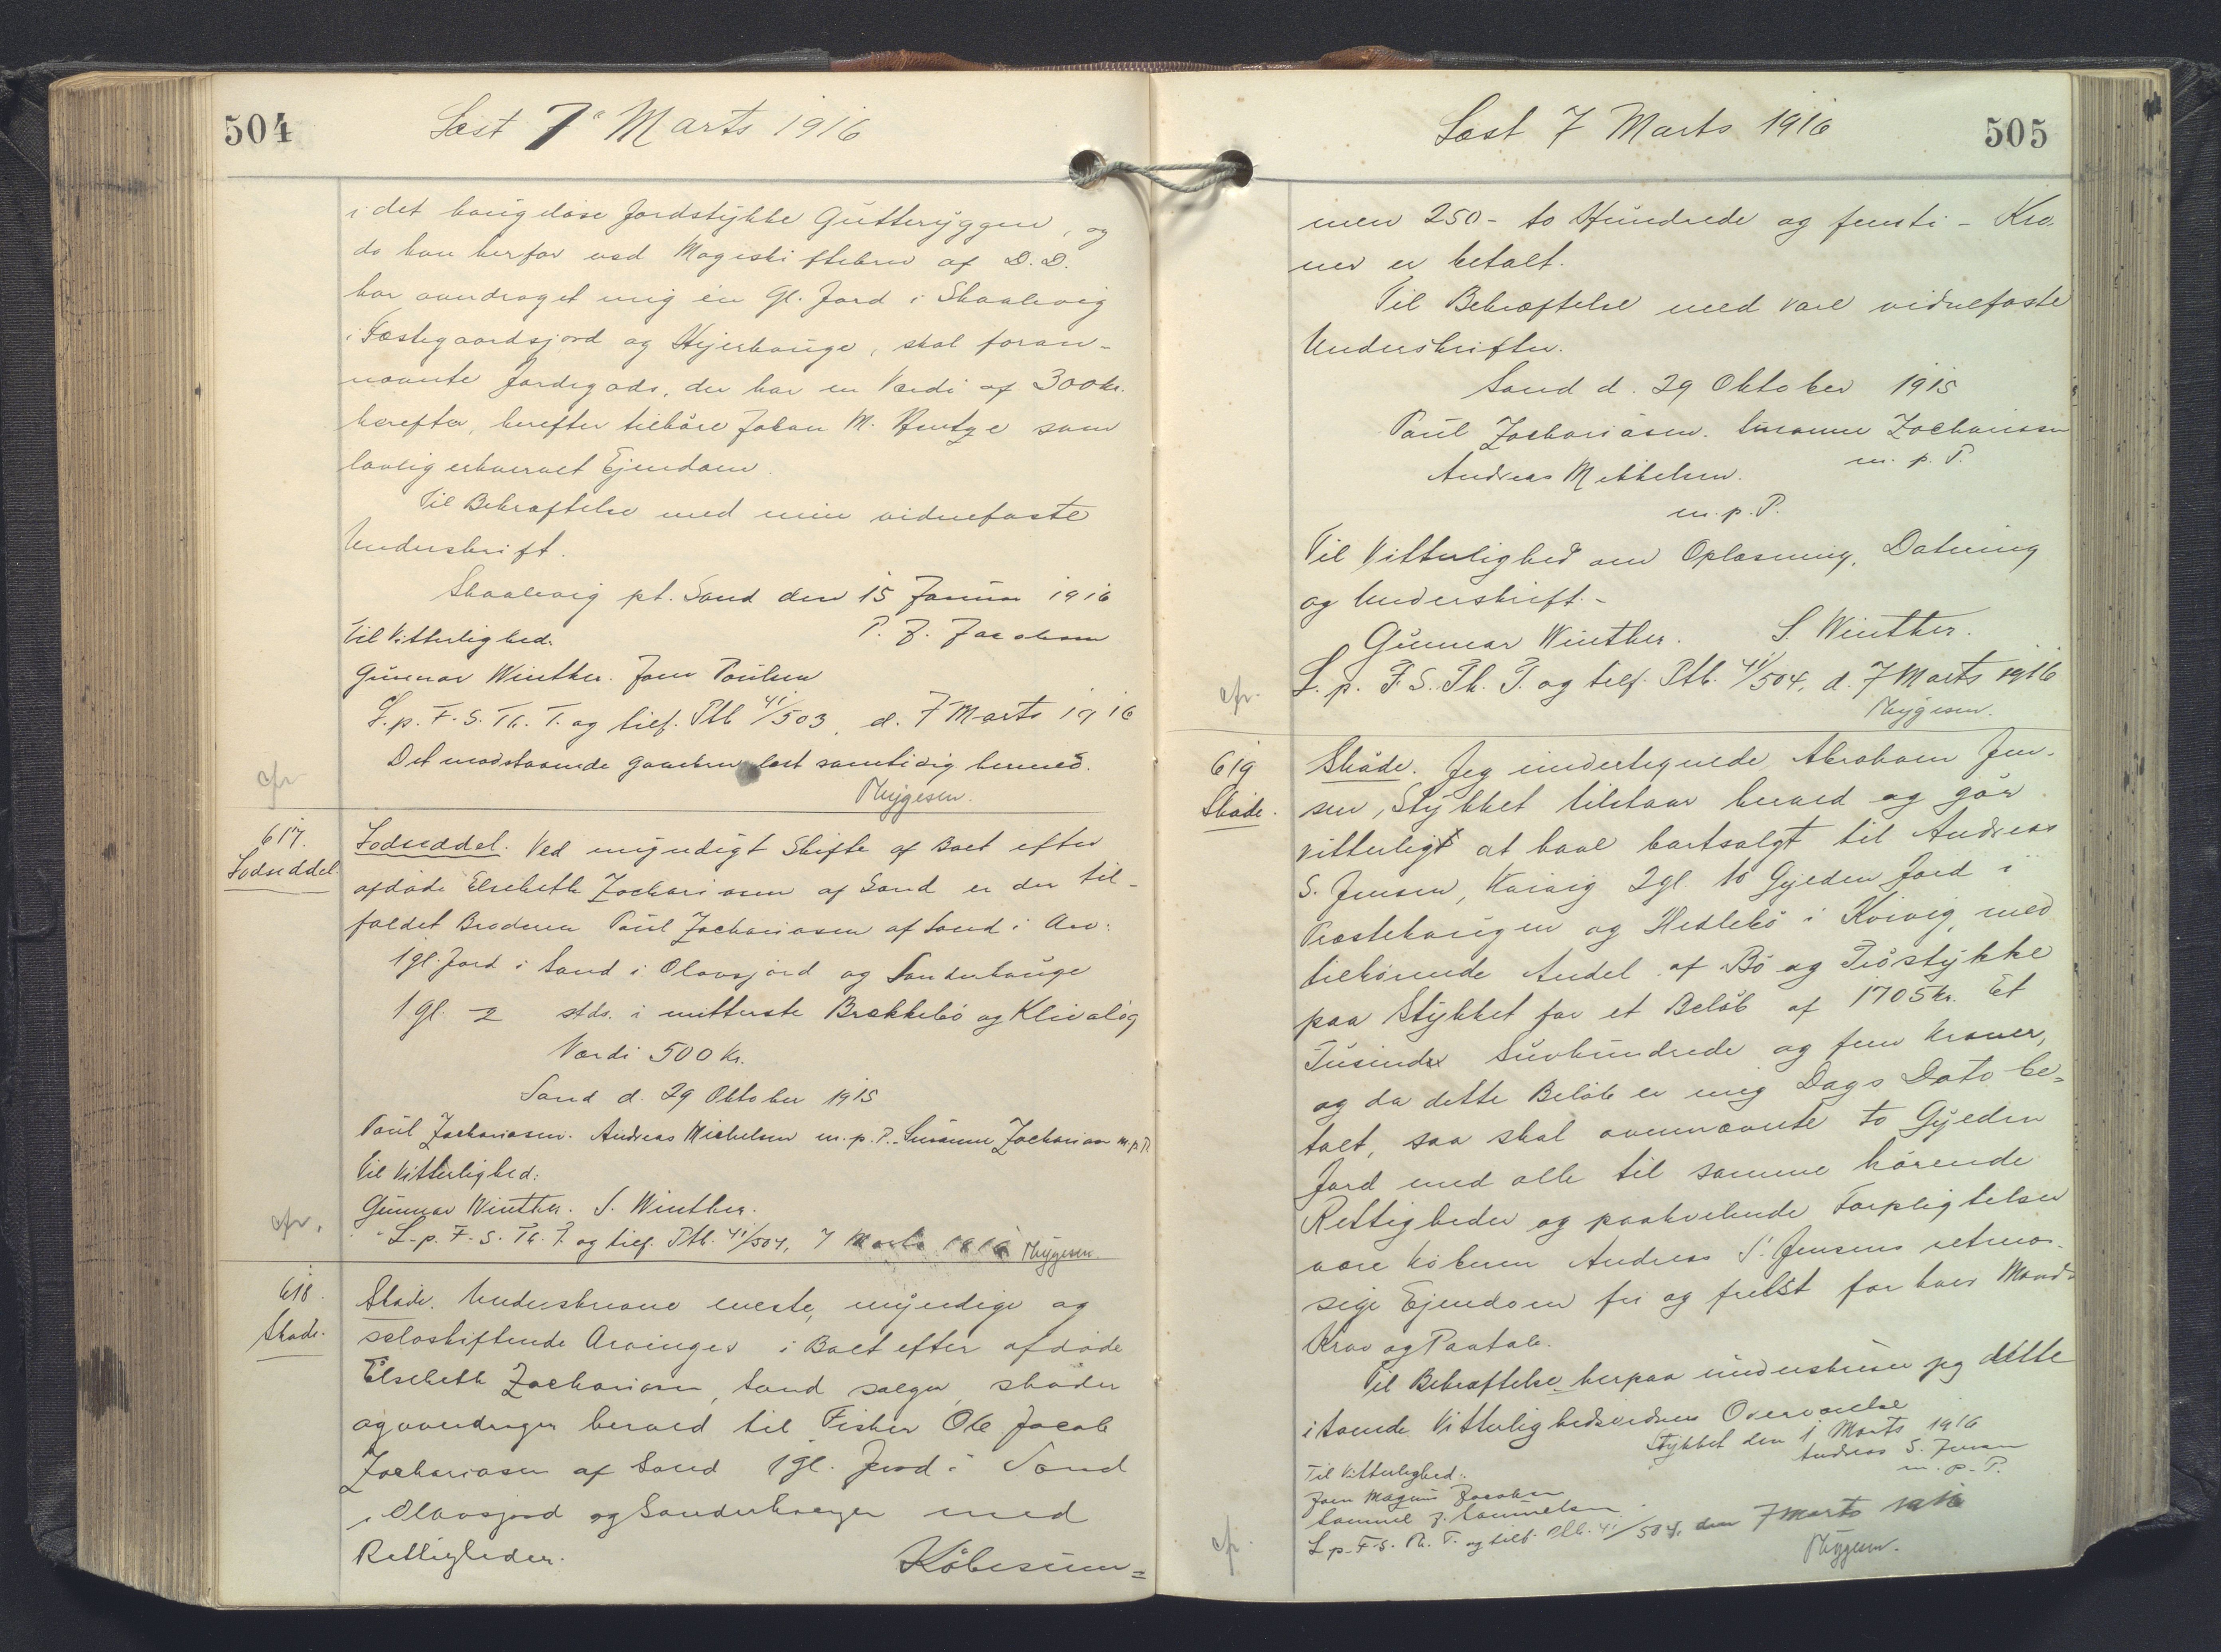 504
Læst 7de Marts 1916
i det haugeløse Jordstykke Gutteryggen, og
da han herfor ved Mageskiftebrev af D.D.
har overdraget mig én Gl. Jord i Skaalevig
i Fæstegaardsjord og Hejerhauge, skal foran-
nævnte Jordegods, der har en Værdi af 300 kr.
herefter, herefter tilhøre Johan M. Hentze som
lovlig erhvervet Ejendom.
Til Bekræftelse med min vidnefaste
Underskrift.
Skaalevig pt. Sand den 15 Januar 1916
Til Vitterlighed: P. J. Jacobsen
Gunnar Winther. Joen Poulsen
L. p. F. S. Th. T. og tilf. Ptb 41/503, d. 7 Marts 1916
Det modstaaende Gavebrev læst samtidig hermed.
cfr
Thygesen.
617.
Lodseddel.
Lodseddel. Ved myndigt Skifte af Boet efter
afdøde Elsebeth Zachariasen af Sand er der til-
faldet Broderen Poul Zachariasen af Sand i Arv:
1 gl. Jord i Sand i Olavsjord og Sanderhauge
1 Gl. - 2 stds. i mitterste Brekkebø og Klivaløg
Værdi 500 Kr.
Sand d. 29 Oktober 1915
Poul Zachariasen. Andreas Michelsen m. p. P. Susanne Zachariasen m. p. P.
Til Vitterlighed:
Gunnar Winther. S. Winther.
cfr.
L. p. F. S. Th. T. og tilf. Ptb. 41/504, 7 Marts 1916 Thygesen
618.
Skøde.
Skøde. Underskrevne eneste, myndige og
selvskiftende Arvinger i Boet efter afdøde
Elsebeth Zachariasen, Sand sælger, skøder
og overdrager herved til Fisker Ole Jacob
Zachariasen af Sand 1 gl. Jord i Sand
i Olavsjord og Sanderhauge med
Rettigheder. Købesum=
Læst 7 Marts 1916
505
men 250 - to Hundrede og femti - Kro-
ner er betalt.
Til Bekræftelse med vore vidnefaste
Underskrifter.
Sand d. 29 Oktober 1915
Poul Zachariasen. Susanne Zachariasen
m. p. P.
Andreas Mikkelsen.
m. p. P.
Til Vitterlighed om Oplæsning, Datering
og Underskrift.-
Gunnar Winther. S. Winther.
cfr.
L. p. F. S. Th. T. og tilf. Ptb. 41/504, d. 7 Marts 1916
Thygesen.
619
Skøde.
Skøde. Jeg undertegnede Abraham Jen-
sen, Stykket tilstaar herved og gør
vitterligt at have bortsolgt til Andreas
S. Jensen, Kvivig 2 gl. to Gylden Jord i
Præstehaugen og Hedlebø i Kvivig, med
tilhørende Andel af Bø og Trøstykke
paa Stykket for et Beløb af 1705 kr. Et
Tusinde Syvhundrede og fem Kroner,
og da dette Beløb er mig Dags Dato be=
talt, saa skal ovennævnte to Gylden
Jord med alle til samme hørende
Rettigheder og paahvilende Forpligtelser
være Køberen Andreas S. Jensens retmæs-
sige Ejendom fri og frelst for hver Mands
Krav og Paatale.
Til Bekræftelse herpaa underskriver jeg dette
i tvende Vitterlighedsvidners Overværelse
Stykket den 1 Marts 1916
Andreas S. Jensen
m. p. P.
Til Vitterlighed:
Joen Magnus Jacobsen
Samuel J. Samuelsen
cfr.
L. p. F. S. Th. T. og tilf. Ptb. 41/504, den 7 Marts 1916
Thygesen.